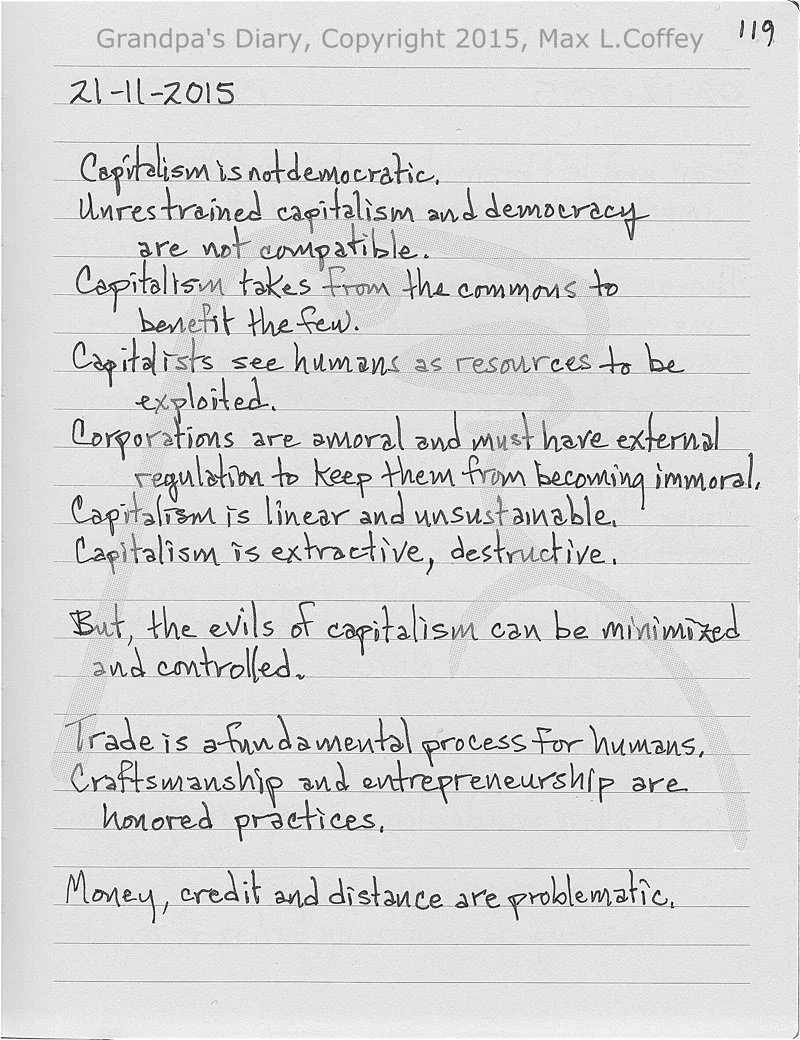 Grandpa's Diary, Copyright 2015, Max L.Coffey
119
21-11-2015
Capitalism is not democratic.
Unrestrained capitalism and democracy
are not compatible.
Capitalism takes from the commons to
benefit the few.
Capitalists see humans as resources to be
exploited.
Corporations are amoral and must have external
regulation to keep them from becoming immoral.
Capitalism is linear and unsustainable.
Capitalism is extractive, destructive.
But, the evils of capitalism can be minimized
and controlled.
Trade is a fundamental process for humans.
Craftsmanship and entrepreneurship are
honored practices.
Money, credit and distance are problematic.